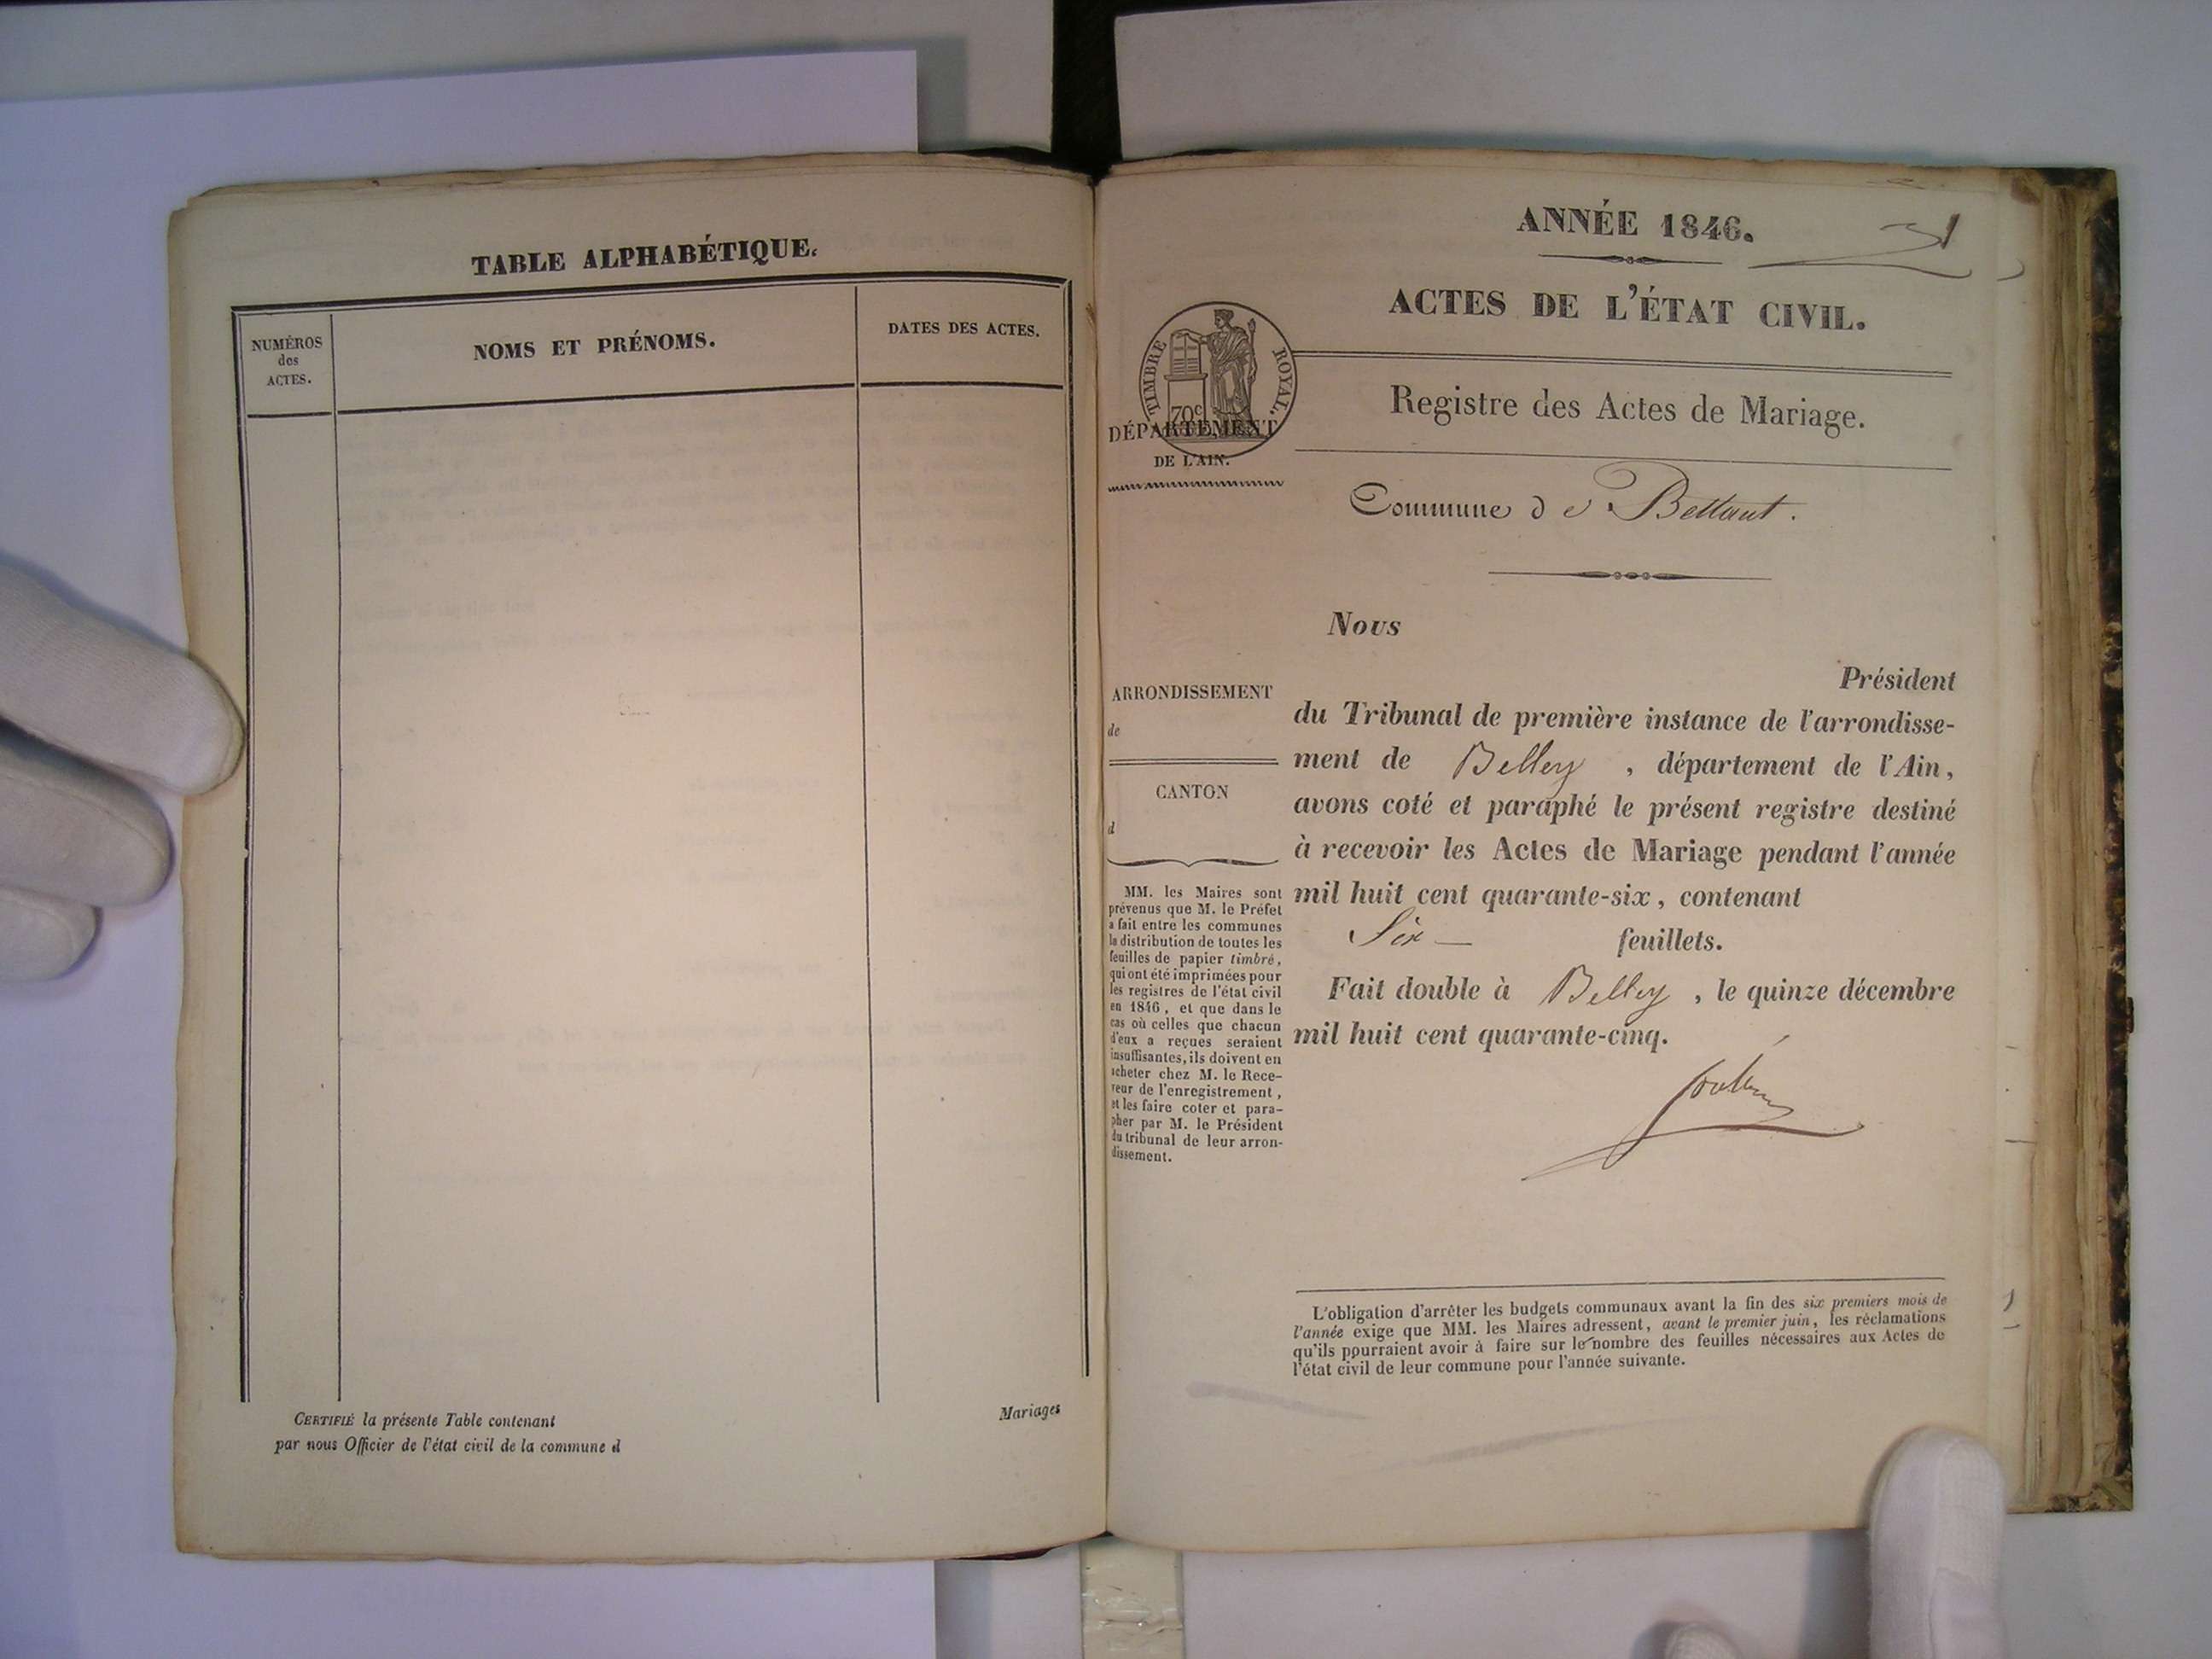 TABLE ALPHABÉTIQUE.
NUMÉROS
des
ACTES.
NOMS ET PRÉNOMS.
DATES DES ACTES.
CERTIFIÉ la présente Table contenant
par nous Officier de l'état civil de la commune d
Mariages
ANNÉE 1846.
31
ACTES DE L'ÉTAT CIVIL.
TIMBRE ROYAL.
70c
DÉPARTEMENT
DE L'AIN.
Registre des Actes de Mariage.
Commune de Bettant.
Nous
Président
du Tribunal de première instance de l'arrondisse-
ment de Belley, département de l'Ain,
avons coté et paraphé le présent registre destiné
à recevoir les Actes de Mariage pendant l'année
mil huit cent quarante-six, contenant
Six feuillets.
Fait double à Belley, le quinze décembre
mil huit cent quarante-cinq.
ARRONDISSEMENT
de
CANTON
d
MM. les Maires sont
prévenus que M. le Préfet
a fait entre les communes
la distribution de toutes les
feuilles de papier timbré,
qui ont été imprimées pour
les registres de l'état civil
en 1846, et que dans le
cas où celles que chacun
d'eux a reçues seraient
insuffisantes, ils doivent en
acheter chez M. le Rece-
veur de l'enregistrement,
et les faire coter et para-
pher par M. le Président
du tribunal de leur arron-
dissement.
L'obligation d'arrêter les budgets communaux avant la fin des six premiers mois de
l'année exige que MM. les Maires adressent, avant le premier juin, les réclamations
qu'ils pourraient avoir à faire sur le nombre des feuilles nécessaires aux Actes de
l'état civil de leur commune pour l'année suivante.